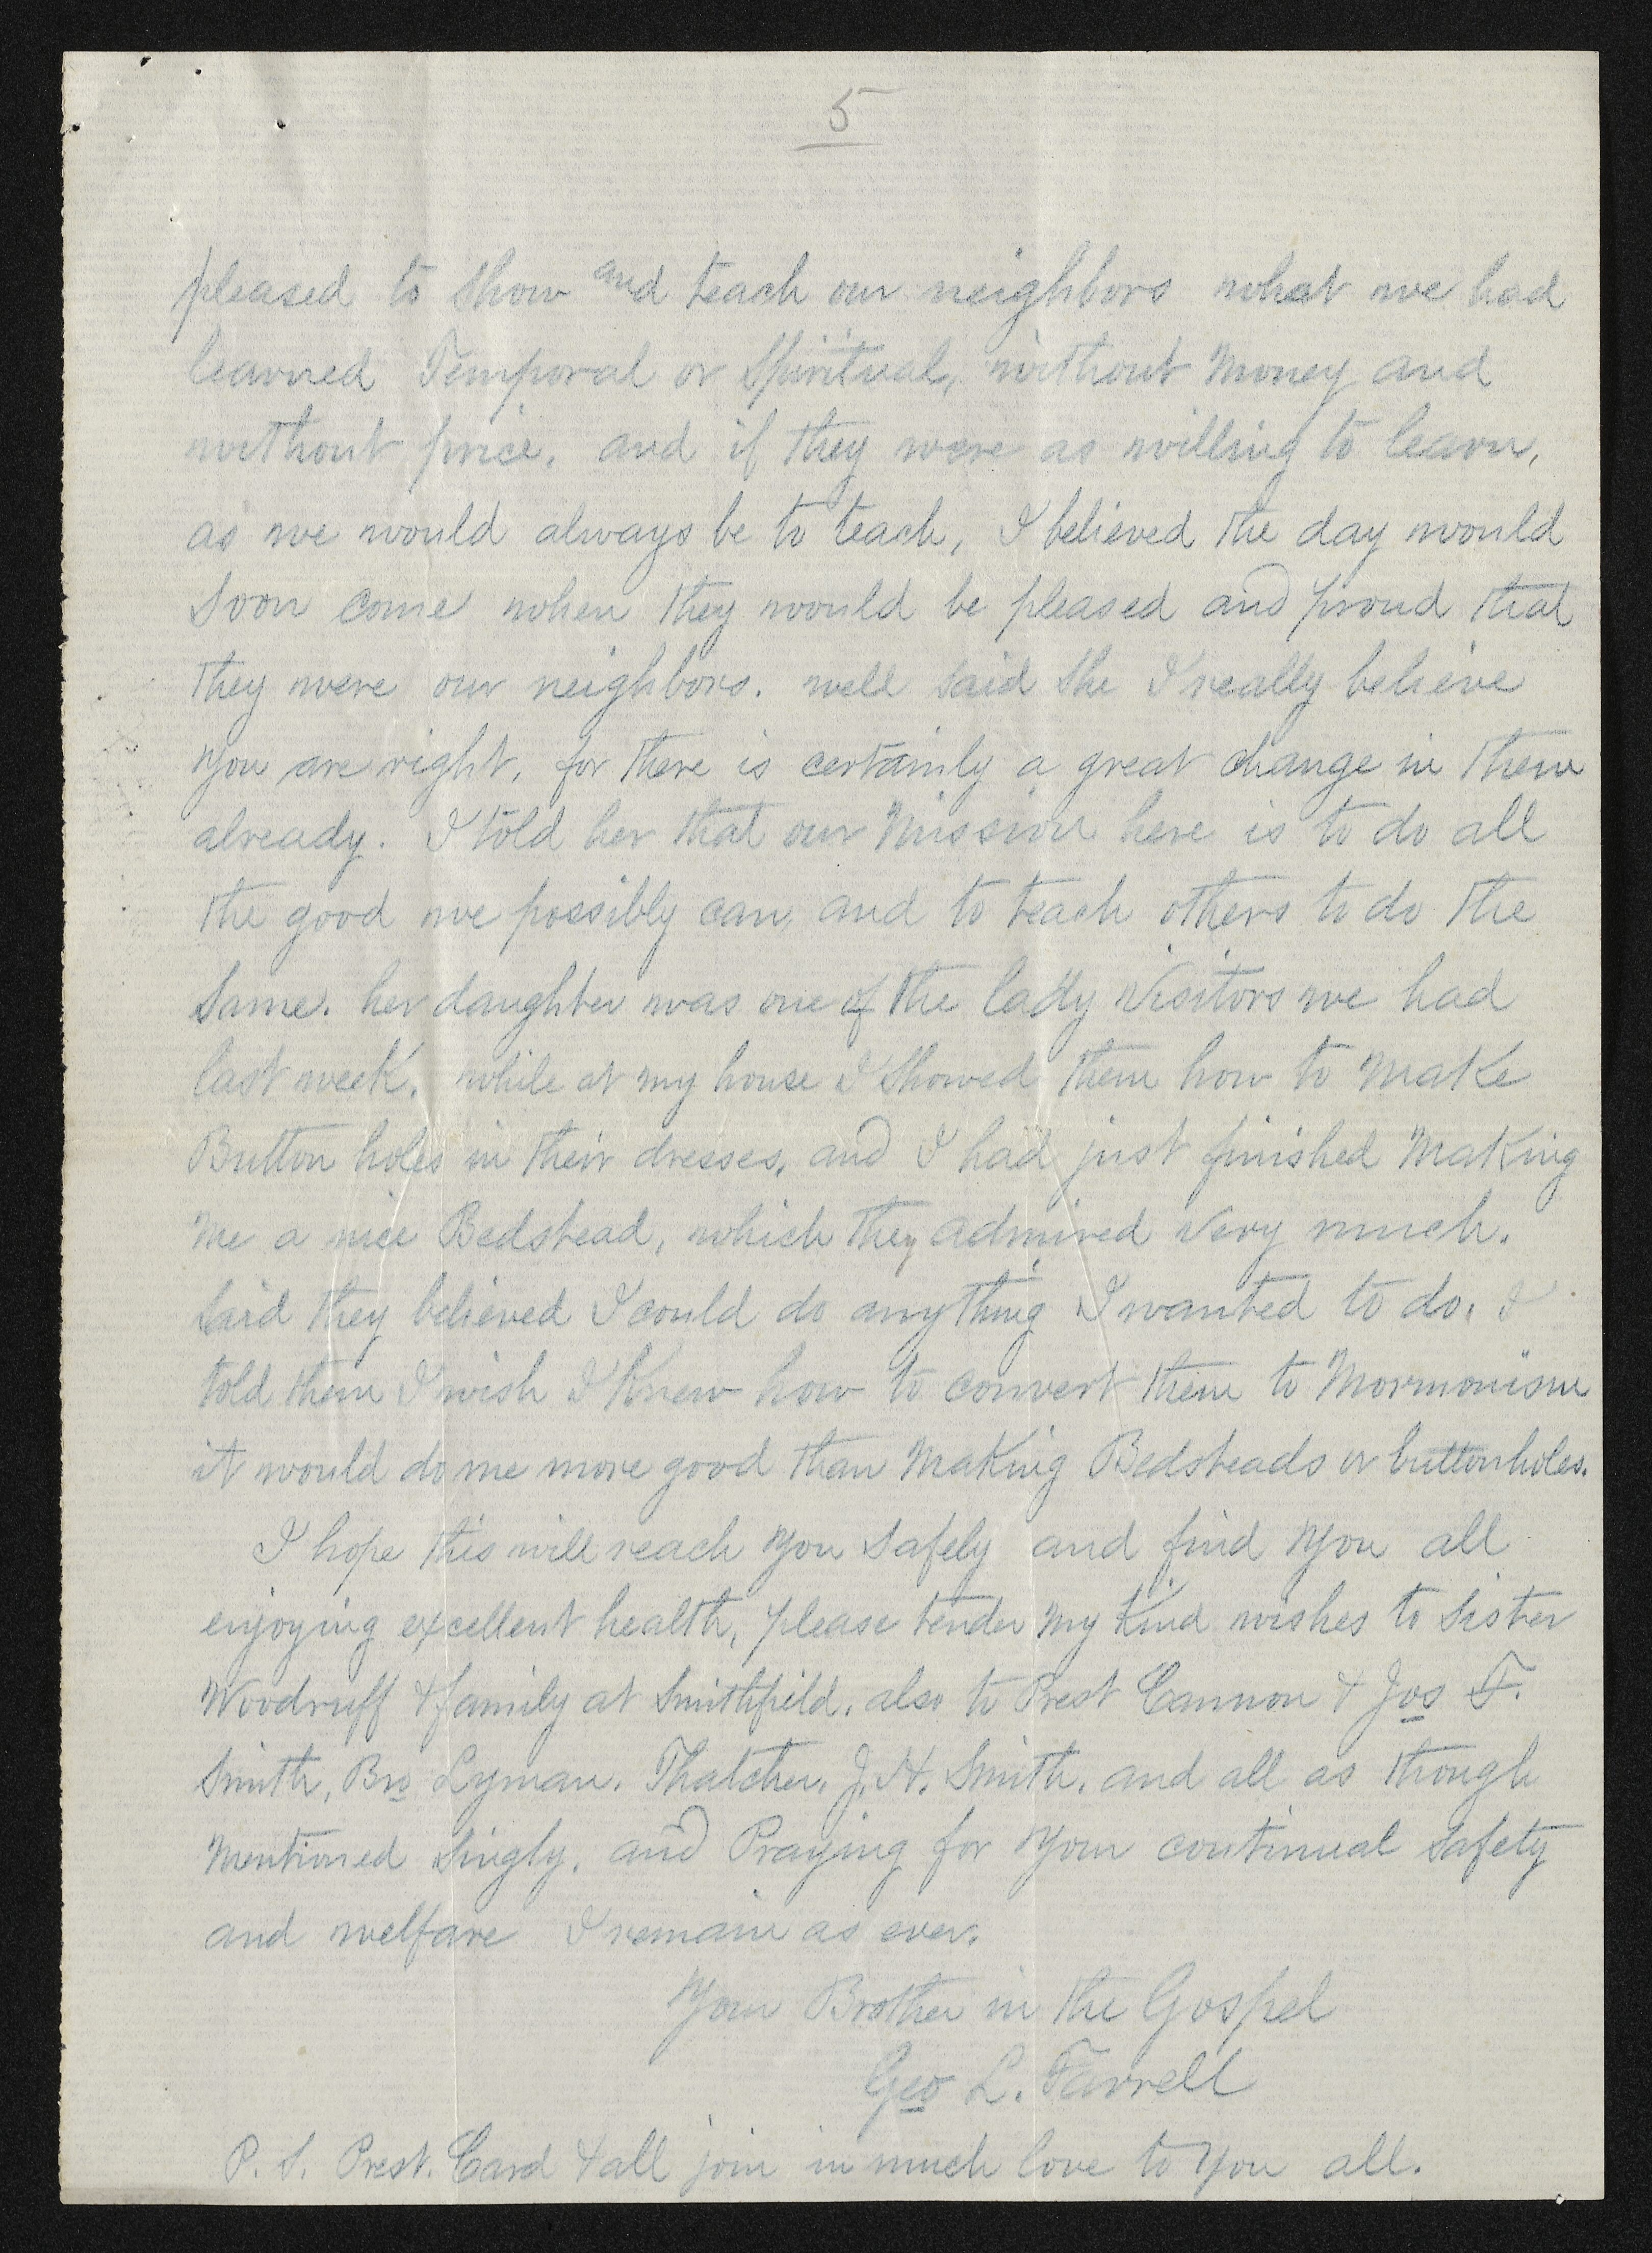 5
pleased to show and teach our neighbors what we had
learned Temporal or Spiritual, without Money and
without price, and if they were as willing to learn,
as we would always be to teach, I believed the day would
Soon come when they would be pleased and proud that
they were our neighbors. well said she I really believe
you are right, for there is certainly a great change in them
already. I told her that our Mission here is to do all
the good we possibly can, and to teach others to do the
Same. her daughter was one of the lady visitors we had
last week. while at my house I showed them how to Make
Button holes in their dresses, and I had just finished Making
me a nice Bedstead, which they admired very much.
Said they believed I could do anything I wanted to do. I
told them I wish I Knew how to convert them to Mormonism
it would do me more good than Making Bedsteads or buttonholes.
I hope this will reach you safely and find you all
enjoying excellent health, please tender my Kind wishes to Sister
Woodruff & family at Smithfield, also to Prest Cannon & Jos F.
Smith, Bro Lyman, Thatcher, J. H. Smith, and all as though
Mentioned Singly, and Praying for your continual Safety
and welfare I remain as ever,
Your Brother in the Gospel
Geo L. Farrell
P. S. Prest. Card & all join in much love to you all.